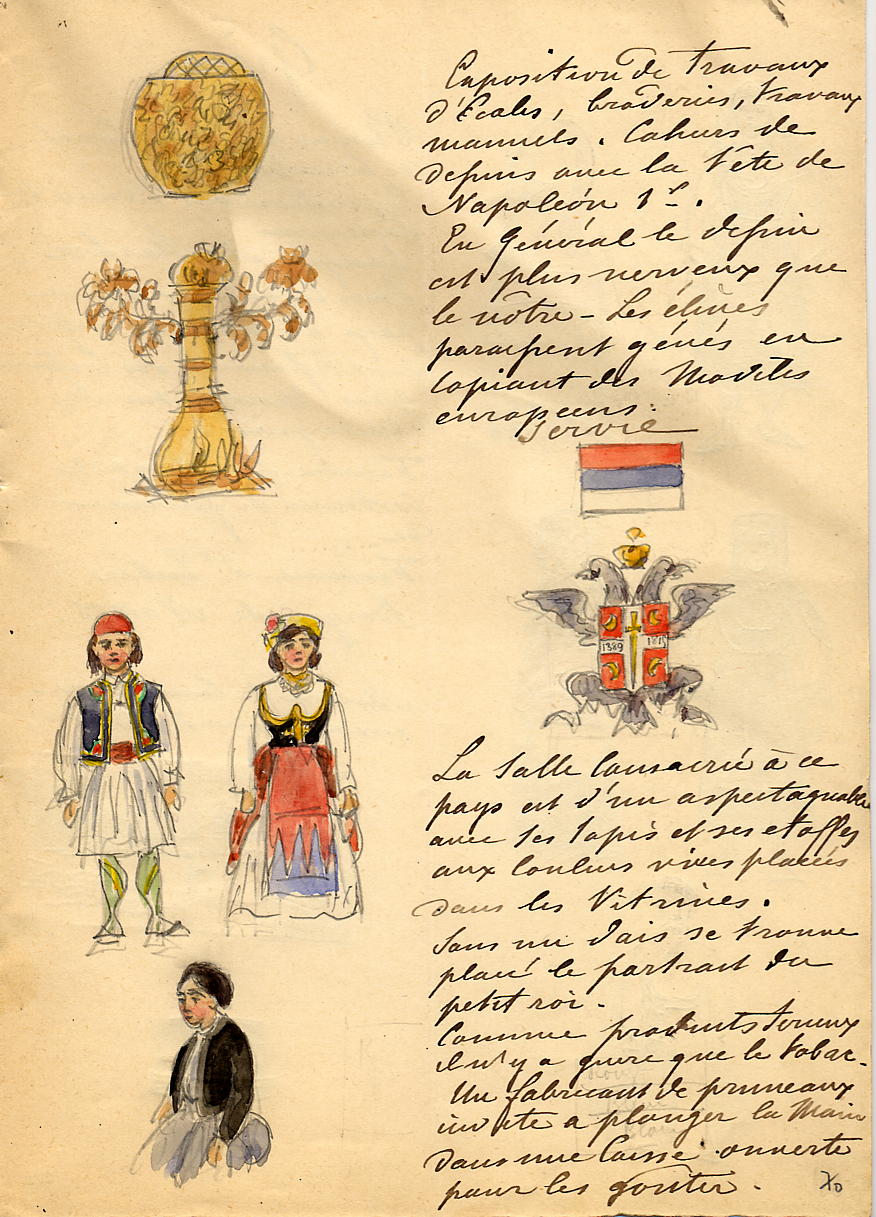 Exposition de travaux
d'Ecoles, broderies, travaux
manuels. Cahiers de
dessins avec la Tête de
Napoléon 1er.
En général le dessin
est plus nerveux que
le nôtre - Les élèves
paraissent gênés en
copiant des Modèles
européens.
Servie
1389 1815
La Salle Consacrée à ce
pays est d'un aspect agréable
avec ses tapis et ses etoffes
aux Couleurs vives placées
dans les Vitrines.
Sous un dais se trouve
placé le portrait du
petit roi.
Comme produits
il n'y a guere que le tabac.
Un fabricant de pruneaux
invite a plonger la Main
dans une Caisse ouverte
pour les goûter.
70